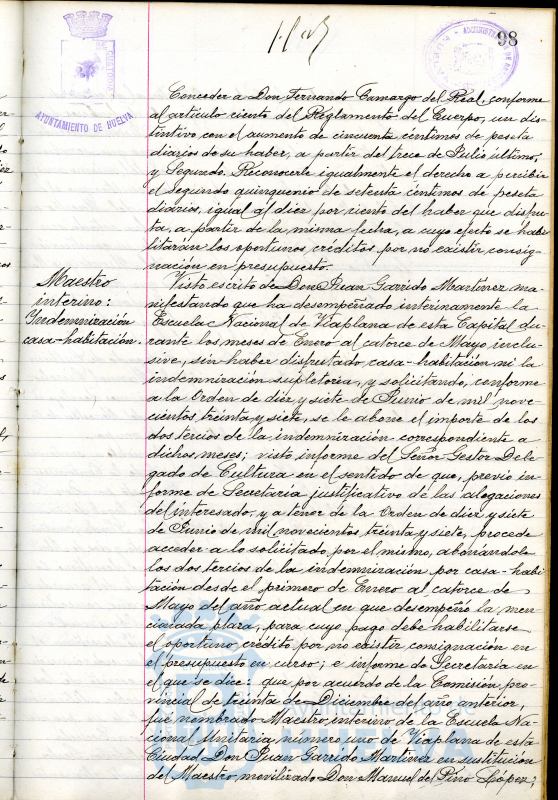 98
AYUNTAMIENTO DE HUELVA
Conceder a Don Fernando Camargo del Real, conforme
al artículo ciento del Reglamento del Cuerpo, un dis-
tintivo con el aumento de cincuenta céntimos de peseta
diarios de su haber, a partir del trece de Julio último;
y Segundo. Reconocerle igualmente el derecho a percibir
el segundo quinquenio de setenta céntimos de peseta
diarios, igual al diez por ciento del haber que disfru-
ta, a partir de la misma fecha, a cuyo efecto se habi-
litarán los oportunos créditos por no existir consig-
nación en presupuesto.
Maestro
interino:
Indemnización
casa-habitación.
Visto escrito de Don Juan Garrido Martínez ma-
nifestando que ha desempeñado interinamente la
Escuela Nacional de Viaplana de esta Capital du-
rante los meses de Enero al catorce de Mayo, inclu-
sive, sin haber disfrutado casa-habitación ni la
indemnización supletoria, y solicitando, conforme
a la Orden de diez y siete de Junio de mil nove-
cientos treinta y siete, se le abone el importe de los
dos tercios de la indemnización correspondiente a
dichos meses; visto informe del Señor Gestor Dele-
gado de Cultura en el sentido de que, previo in-
forme de Secretaria justificativo de las alegaciones
del interesado, y a tenor de la Orden de diez y siete
de Junio de mil novecientos treinta y siete, procede
acceder a lo solicitado por el mismo, abonándole
los dos tercios de la indemnización por casa-habi-
tación desde el primero de Enero al catorce de
Mayo del año actual en que desempeñó la men-
cionada plaza, para cuyo pago debe habilitarse
el oportuno crédito por no existir consignación en
el presupuesto en curso; e informe de Secretaria en
el que se dice: que por acuerdo de la Comisión pro-
vincial de treinta de Diciembre del año anterior,
fué nombrado Maestro interino de la Escuela Na-
cional Unitaria número uno de Viaplana de esta
Ciudad Don Juan Garrido Martínez en sustitución
del Maestro movilizado Don Manuel del Pino López;